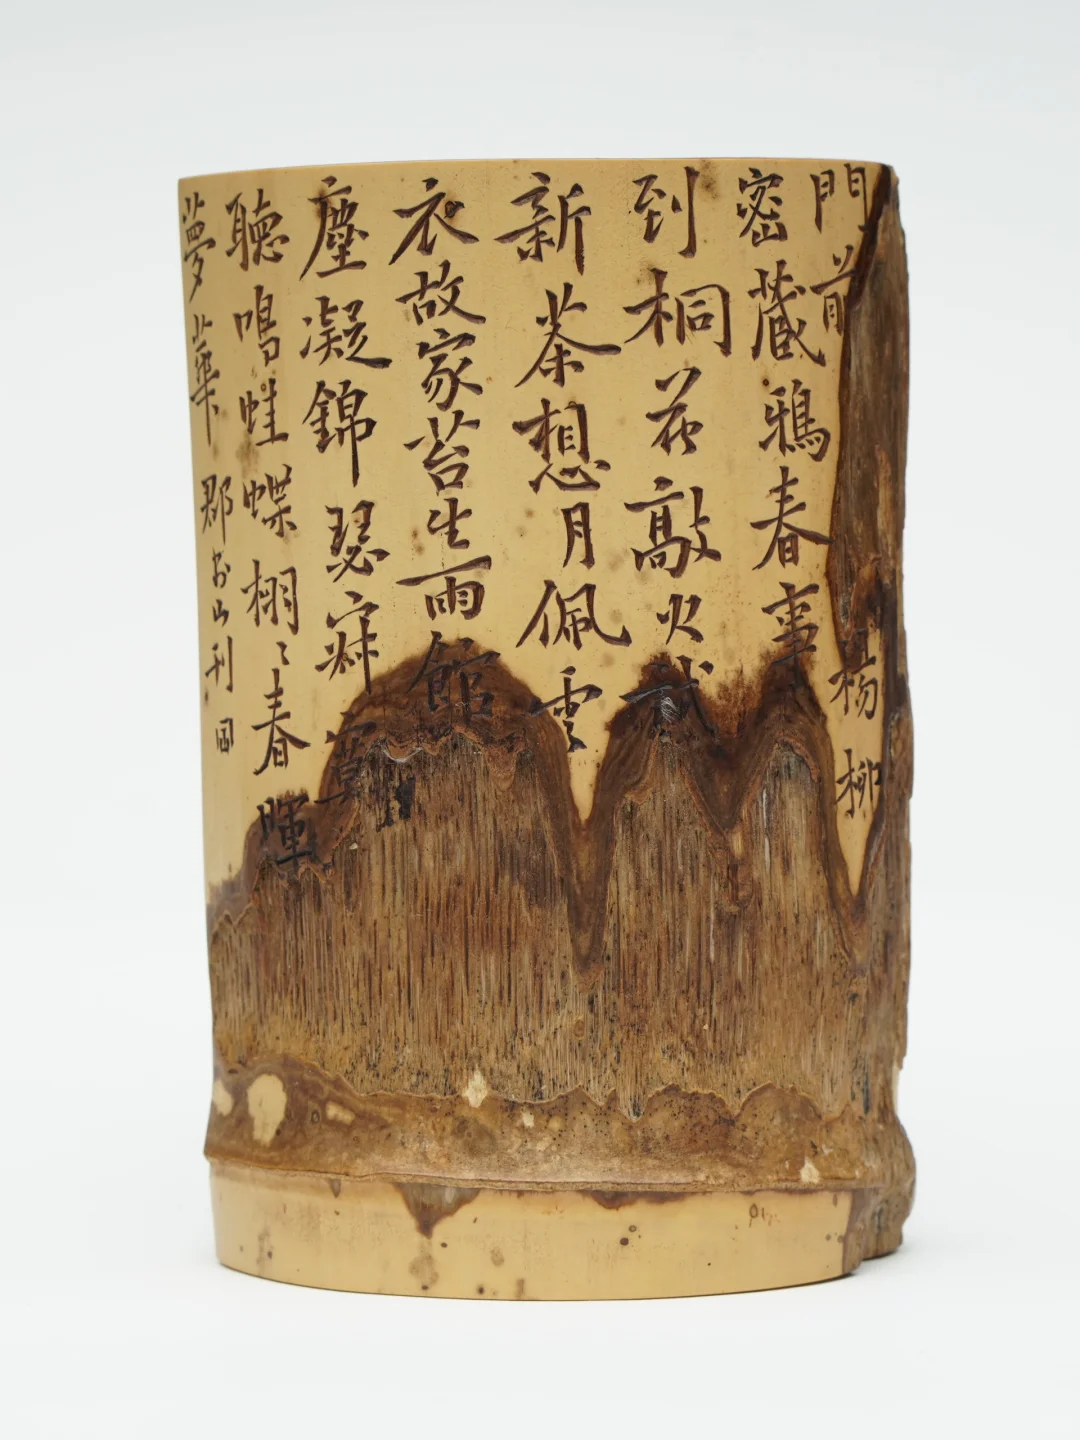 門前楊柳
密藏鴉春事
到桐花敲火試
新茶想月佩雲
衣故家苔生雨館
塵凝錦瑟寂寞
聽鳴蛙蝶栩〻春暉
夢華 郡書山刊